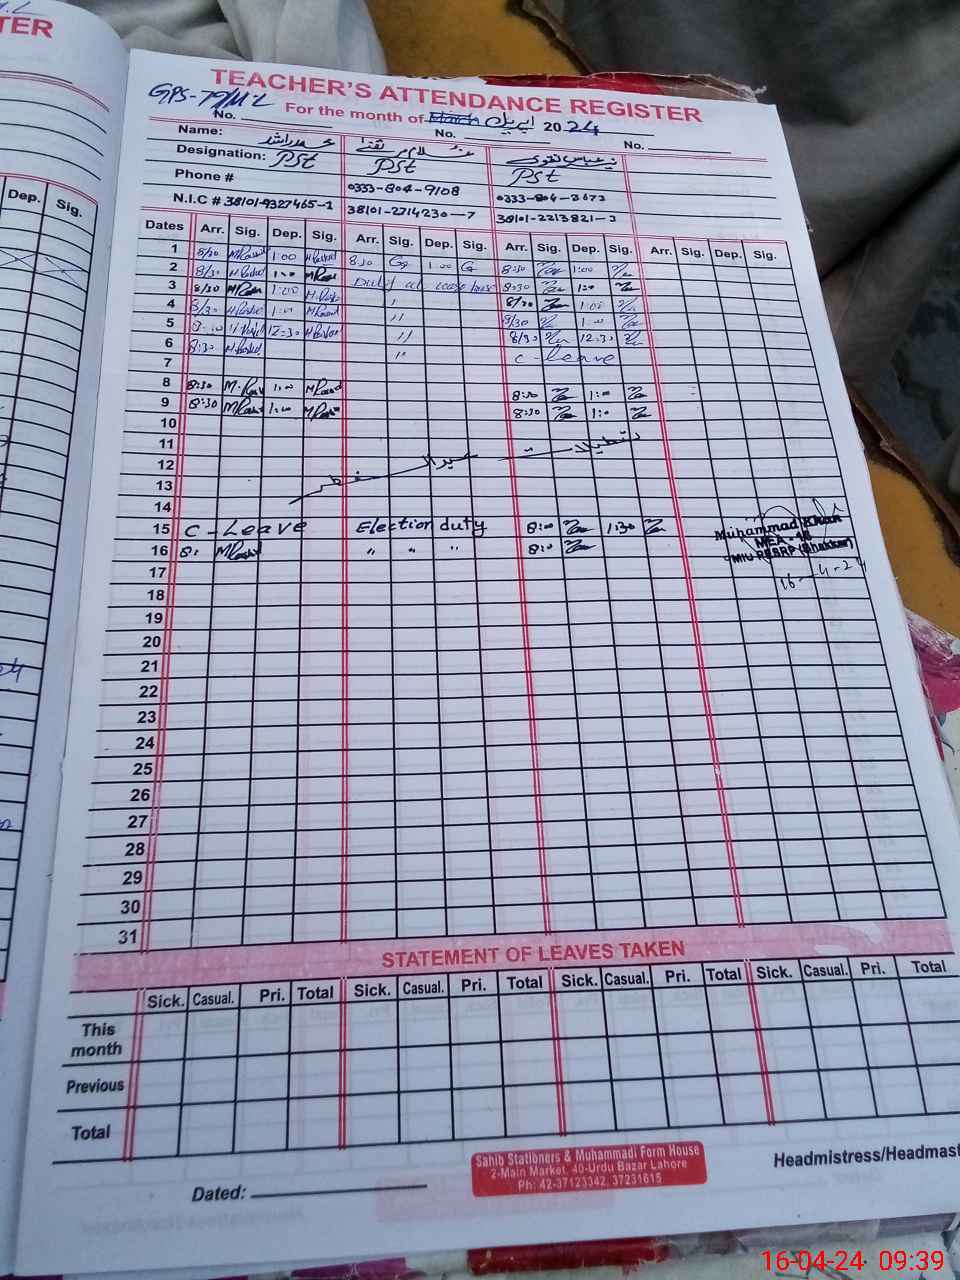 TER
TEACHER'S ATTENDANCE REGISTER
GPS-79/ML
For the month of March اپریل 2024
No. No. No.
Name: محمد راشد غلام
Designation: PST PST PST
Phone # 0333-804-9108 0333-804-3673
N.I.C # 38101-9327465-1 38101-2714230-7 38101-2213821-3
Dep. Sig.
Dates Arr. Sig. Dep. Sig. Arr. Sig. Dep. Sig. Arr. Sig. Dep. Sig. Arr. Sig. Dep. Sig.
1 8/30 M Rashid 1:00 M Rashid 8:30 1:00 8:30 1:00
2 8/30 M Rashid 1:00 M Rashid Duty at 8:30 1:00
3 8/30 M Rashid 1:00 M Rashid " 8/30 1:00
4 8/30 M Rashid 1:00 M Rashid " 8/30 1:00
5 M Rashid 12:30 M Rashid " 8/30 12:30
6 8:30 M Rashid " C-Leave
7
8 8:30 M. Rashid 1:00 M Rashid 8:30 1:00
9 8:30 M Rashid 1:00 M Rashid 8:30 1:0
10
11 تعطیلات
12 عید الفطر
13
14
15 C-Leave Election duty 8:00 1:30
16 8: M Rashid " " " 8:0
Muhammad Khan
MEA-16
MIU PESRP (Bhakkar)
16-4-24
17
18
19
20
21
22
23
24
25
26
27
28
29
30
31
STATEMENT OF LEAVES TAKEN
Sick. Casual. Pri. Total Sick. Casual. Pri. Total Sick. Casual. Pri. Total Sick. Casual. Pri. Total
This month
Previous
Total
Sahib Stationers & Muhammadi Form House
2-Main Market, 40-Urdu Bazar Lahore
Ph: 42-37123342, 37231615
Headmistress/Headmast
Dated:
16-04-24 09:39